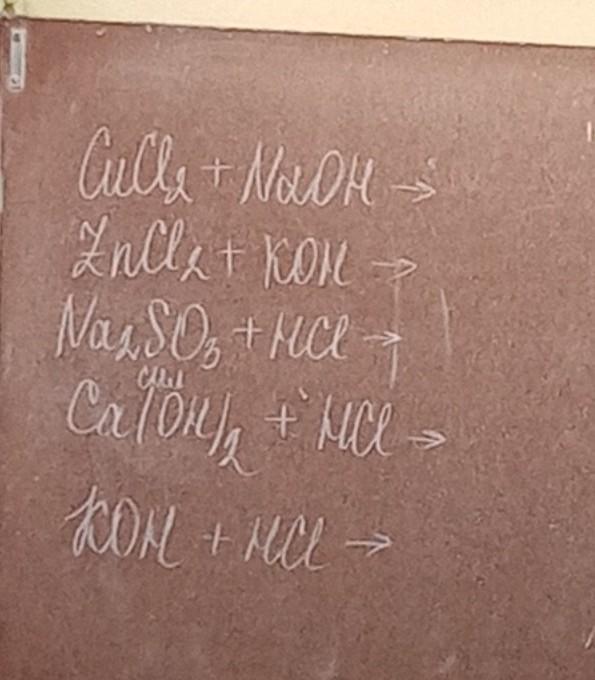 CuCl₂ + NaOH →
ZnCl₂ + KOH →
Na₂SO₃ + HCl →
Ca(OH)₂ + HCl →
KOH + HCl →